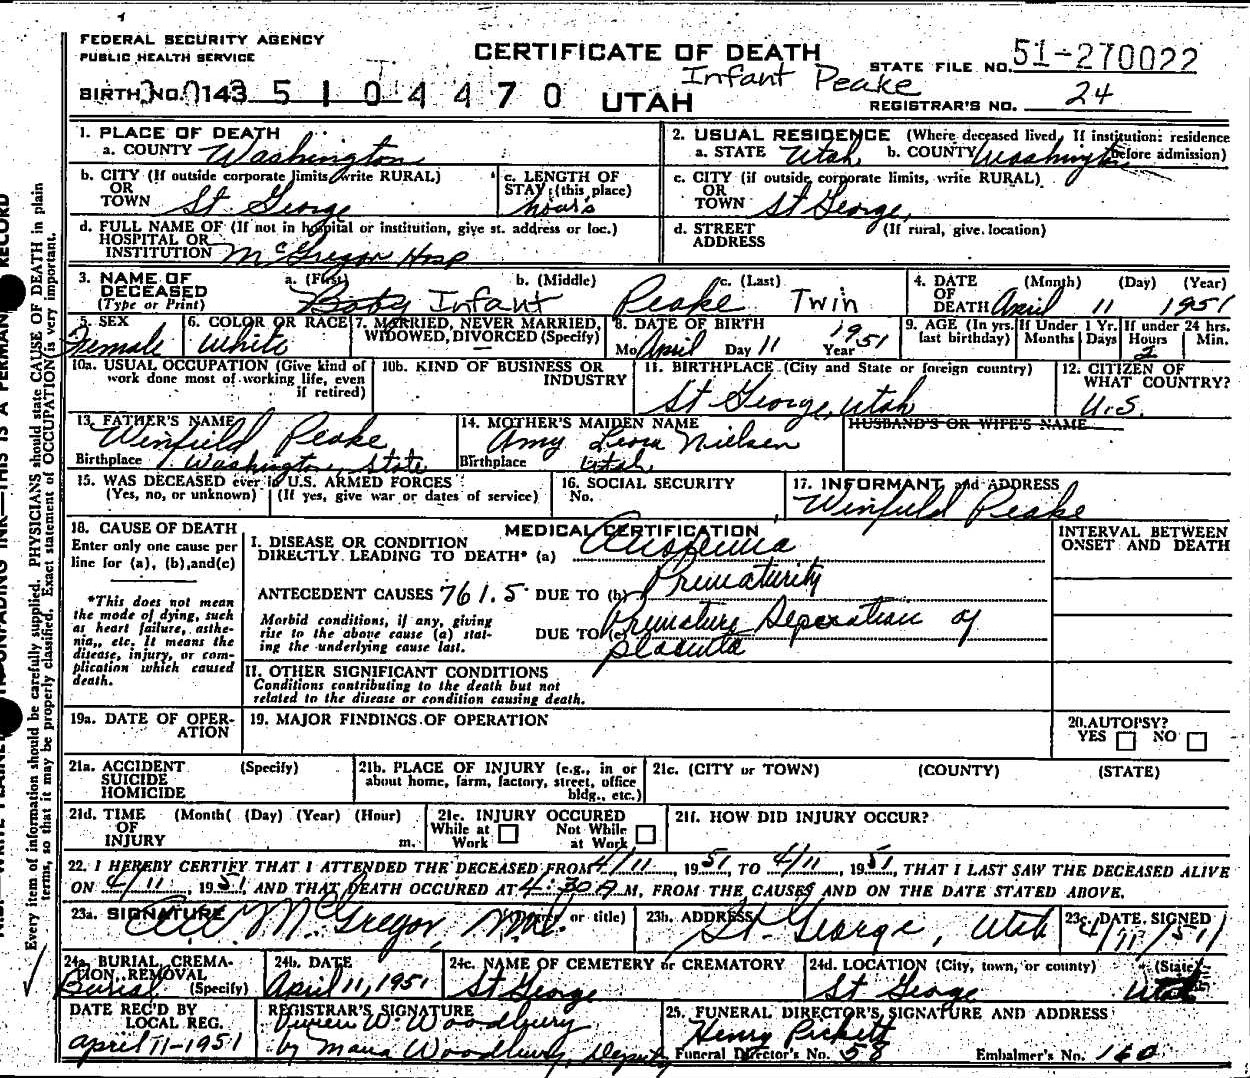 FEDERAL SECURITY AGENCY
PUBLIC HEALTH SERVICE
CERTIFICATE OF DEATH
STATE FILE NO. 51-270022
Infant Peake
BIRTH NO. 0143 5104470
UTAH
REGISTRAR'S NO. 24
1. PLACE OF DEATH
a. COUNTY Washington
2. USUAL RESIDENCE (Where deceased lived, If institution: residence before admission)
a. STATE Utah b. COUNTY Washington
b. CITY (If outside corporate limits, write RURAL) OR TOWN St. George
c. LENGTH OF STAY (this place) hours
c. CITY (if outside corporate limits, write RURAL) OR TOWN St George,
d. FULL NAME OF (If not in hospital or institution, give st. address or loc.) HOSPITAL OR INSTITUTION McGregor Hosp
d. STREET ADDRESS (If rural, give location)
3. NAME OF DECEASED (Type or Print)
a. (First) b. (Middle) c. (Last)
Baby Infant Peake Twin
4. DATE OF DEATH (Month) (Day) (Year) April 11 1951
5. SEX Female
6. COLOR OR RACE White
7. MARRIED, NEVER MARRIED, WIDOWED, DIVORCED (Specify) —
8. DATE OF BIRTH Mo April Day 11 Year 1951
9. AGE (In yrs. last birthday)
If Under 1 Yr. Months Days
If under 24 hrs. Hours 2 Min.
10a. USUAL OCCUPATION (Give kind of work done most of working life, even if retired)
10b. KIND OF BUSINESS OR INDUSTRY
11. BIRTHPLACE (City and State or foreign country) St George, Utah
12. CITIZEN OF WHAT COUNTRY? U.S.
13. FATHER'S NAME Winfield Peake
Birthplace Washington, State
14. MOTHER'S MAIDEN NAME Amy Leora Nielsen
Birthplace Utah
HUSBAND'S OR WIFE'S NAME
15. WAS DECEASED ever in U.S. ARMED FORCES
(Yes, no, or unknown) (If yes, give war or dates of service)
16. SOCIAL SECURITY No.
17. INFORMANT and ADDRESS
Winfield Peake
18. CAUSE OF DEATH
Enter only one cause per line for (a), (b), and (c)
*This does not mean the mode of dying, such as heart failure, asthenia, etc. It means the disease, injury, or complication which caused death.
MEDICAL CERTIFICATION
INTERVAL BETWEEN ONSET AND DEATH
I. DISEASE OR CONDITION DIRECTLY LEADING TO DEATH* (a)
ANTECEDENT CAUSES 761.5 DUE TO (b) Prematurity
Morbid conditions, if any, giving rise to the above cause (a) stating the underlying cause last.
DUE TO (c) Premature Seperation of placenta
II. OTHER SIGNIFICANT CONDITIONS
Conditions contributing to the death but not related to the disease or condition causing death.
19a. DATE OF OPERATION
19. MAJOR FINDINGS OF OPERATION
20. AUTOPSY? YES NO
21a. ACCIDENT SUICIDE HOMICIDE (Specify)
21b. PLACE OF INJURY (e.g., in or about home, farm, factory, street, office bldg., etc.)
21c. (CITY or TOWN) (COUNTY) (STATE)
21d. TIME OF INJURY (Month( (Day) (Year) (Hour) m.
21e. INJURY OCCURED
While at Work Not While at Work
21f. HOW DID INJURY OCCUR?
22. I HEREBY CERTIFY THAT I ATTENDED THE DECEASED FROM 4/11, 1951 TO 4/11, 1951, THAT I LAST SAW THE DECEASED ALIVE
ON 4/11, 1951 AND THAT DEATH OCCURED AT 4:30 A M, FROM THE CAUSES AND ON THE DATE STATED ABOVE.
23a. SIGNATURE McGregor, M.D. (Degree or title)
23b. ADDRESS St. George, Utah
23c. DATE SIGNED 4/11/51
24a. BURIAL, CREMATION, REMOVAL (Specify) Burial
24b. DATE April 11, 1951
24c. NAME OF CEMETERY or CREMATORY St George
24d. LOCATION (City, town, or county) (State) St George Utah
DATE REC'D BY LOCAL REG. April 11-1951
REGISTRAR'S SIGNATURE Vivien W. Woodbury
by Maria Woodbury, Deputy
25. FUNERAL DIRECTOR'S SIGNATURE AND ADDRESS
Henry Pickett
Funeral Director's No. 58 Embalmer's No. 160
Every item of information should be carefully supplied. PHYSICIANS should state CAUSE OF DEATH in plain
terms, so that it may be properly classified. Exact statement of OCCUPATION is very important.
THIS IS A PERMANENT RECORD